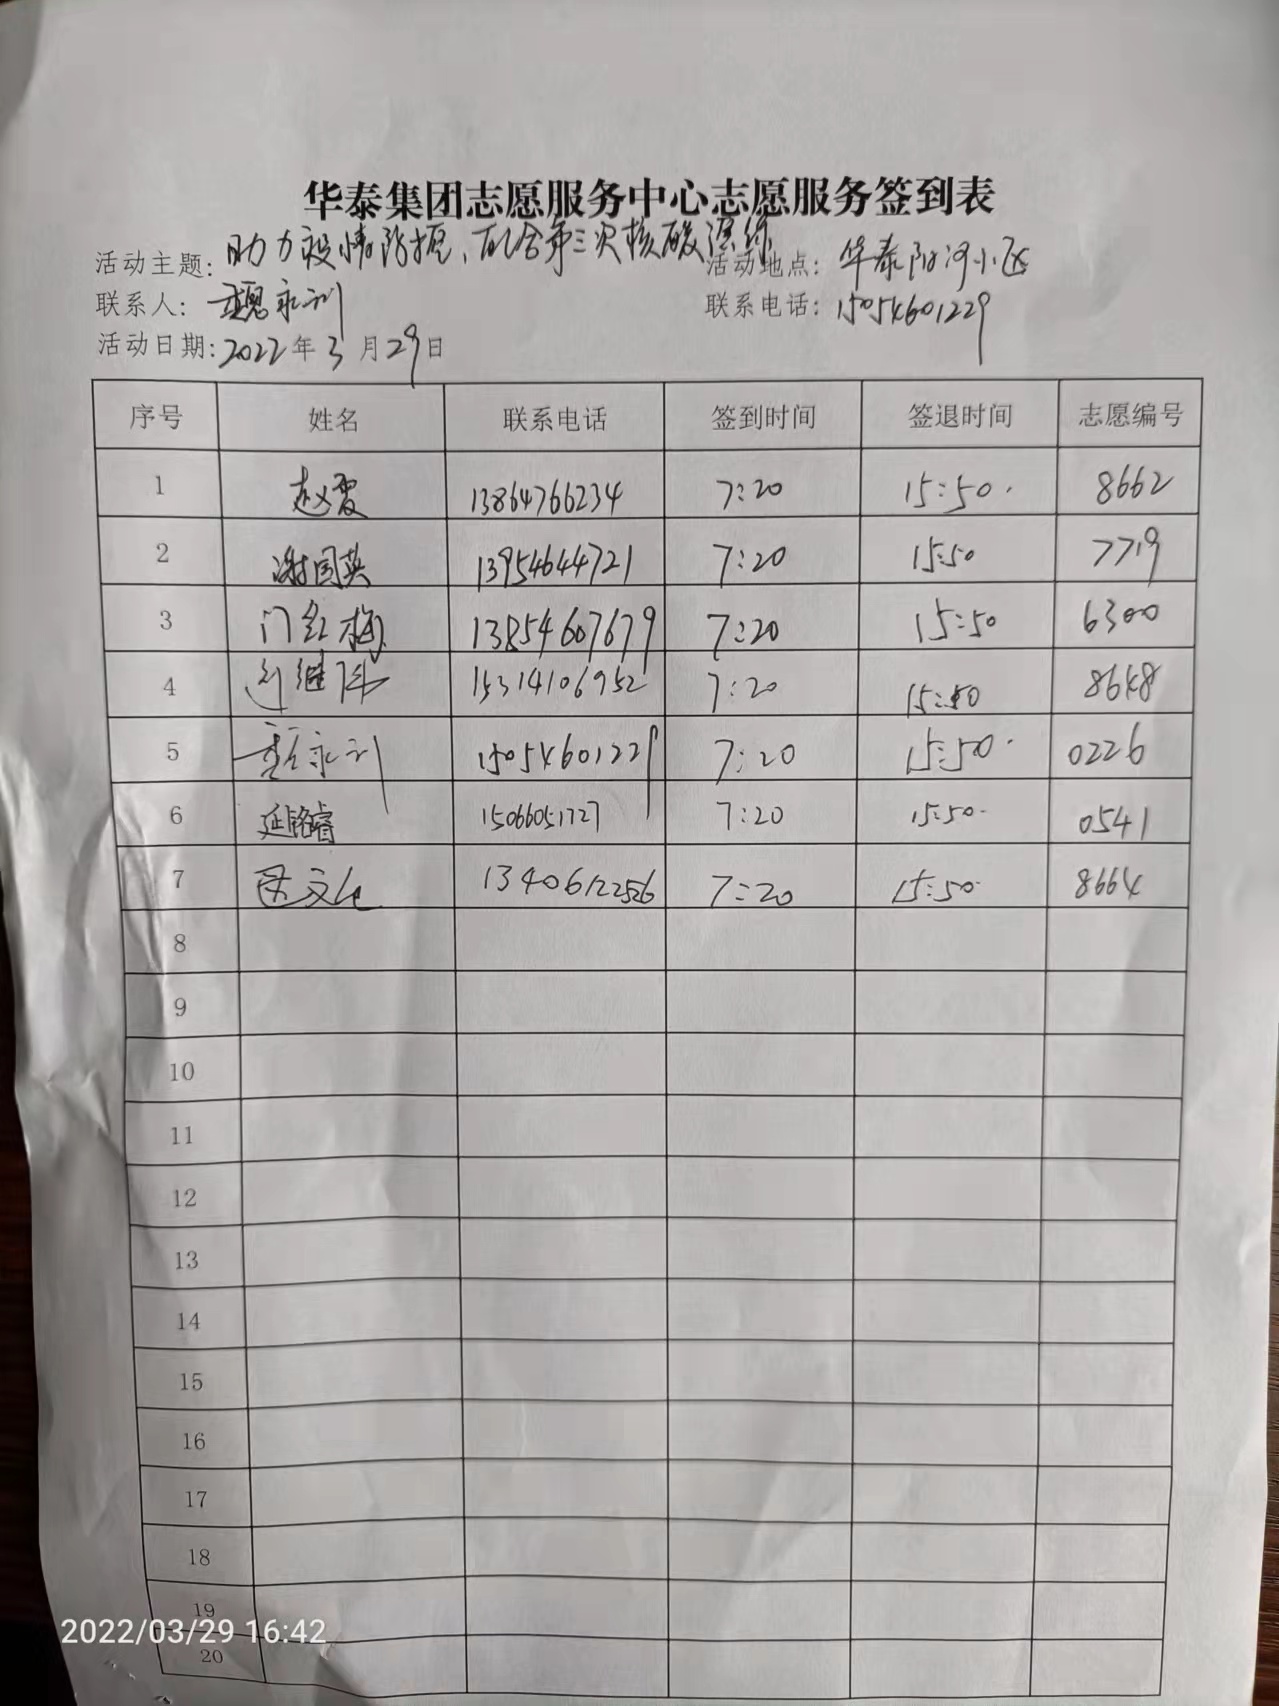 华泰集团志愿服务中心志愿服务签到表
活动主题: 助力疫情防控、配合第三次核酸 活动地点: 华泰阳河小区
联系人: 魏永利 联系电话: 15054601229
活动日期: 2022年3月29日
序号 姓名 联系电话 签到时间 签退时间 志愿编号
1 赵霞 13864766234 7:20 15:50. 8662
2 谢国英 13954644721 7:20 15:50 7719
3 门红梅 13854607679 7:20 15:50 6300
4 15314106952 7:20 15:50 8648
5 魏永利 15054601229 7:20 15:50. 0226
6 延铭睿 15066051727 7:20 15:50. 0541
7 13406122526 7:20 15:50. 8664
8
9
10
11
12
13
14
15
16
17
18
19
20
2022/03/29 16:42